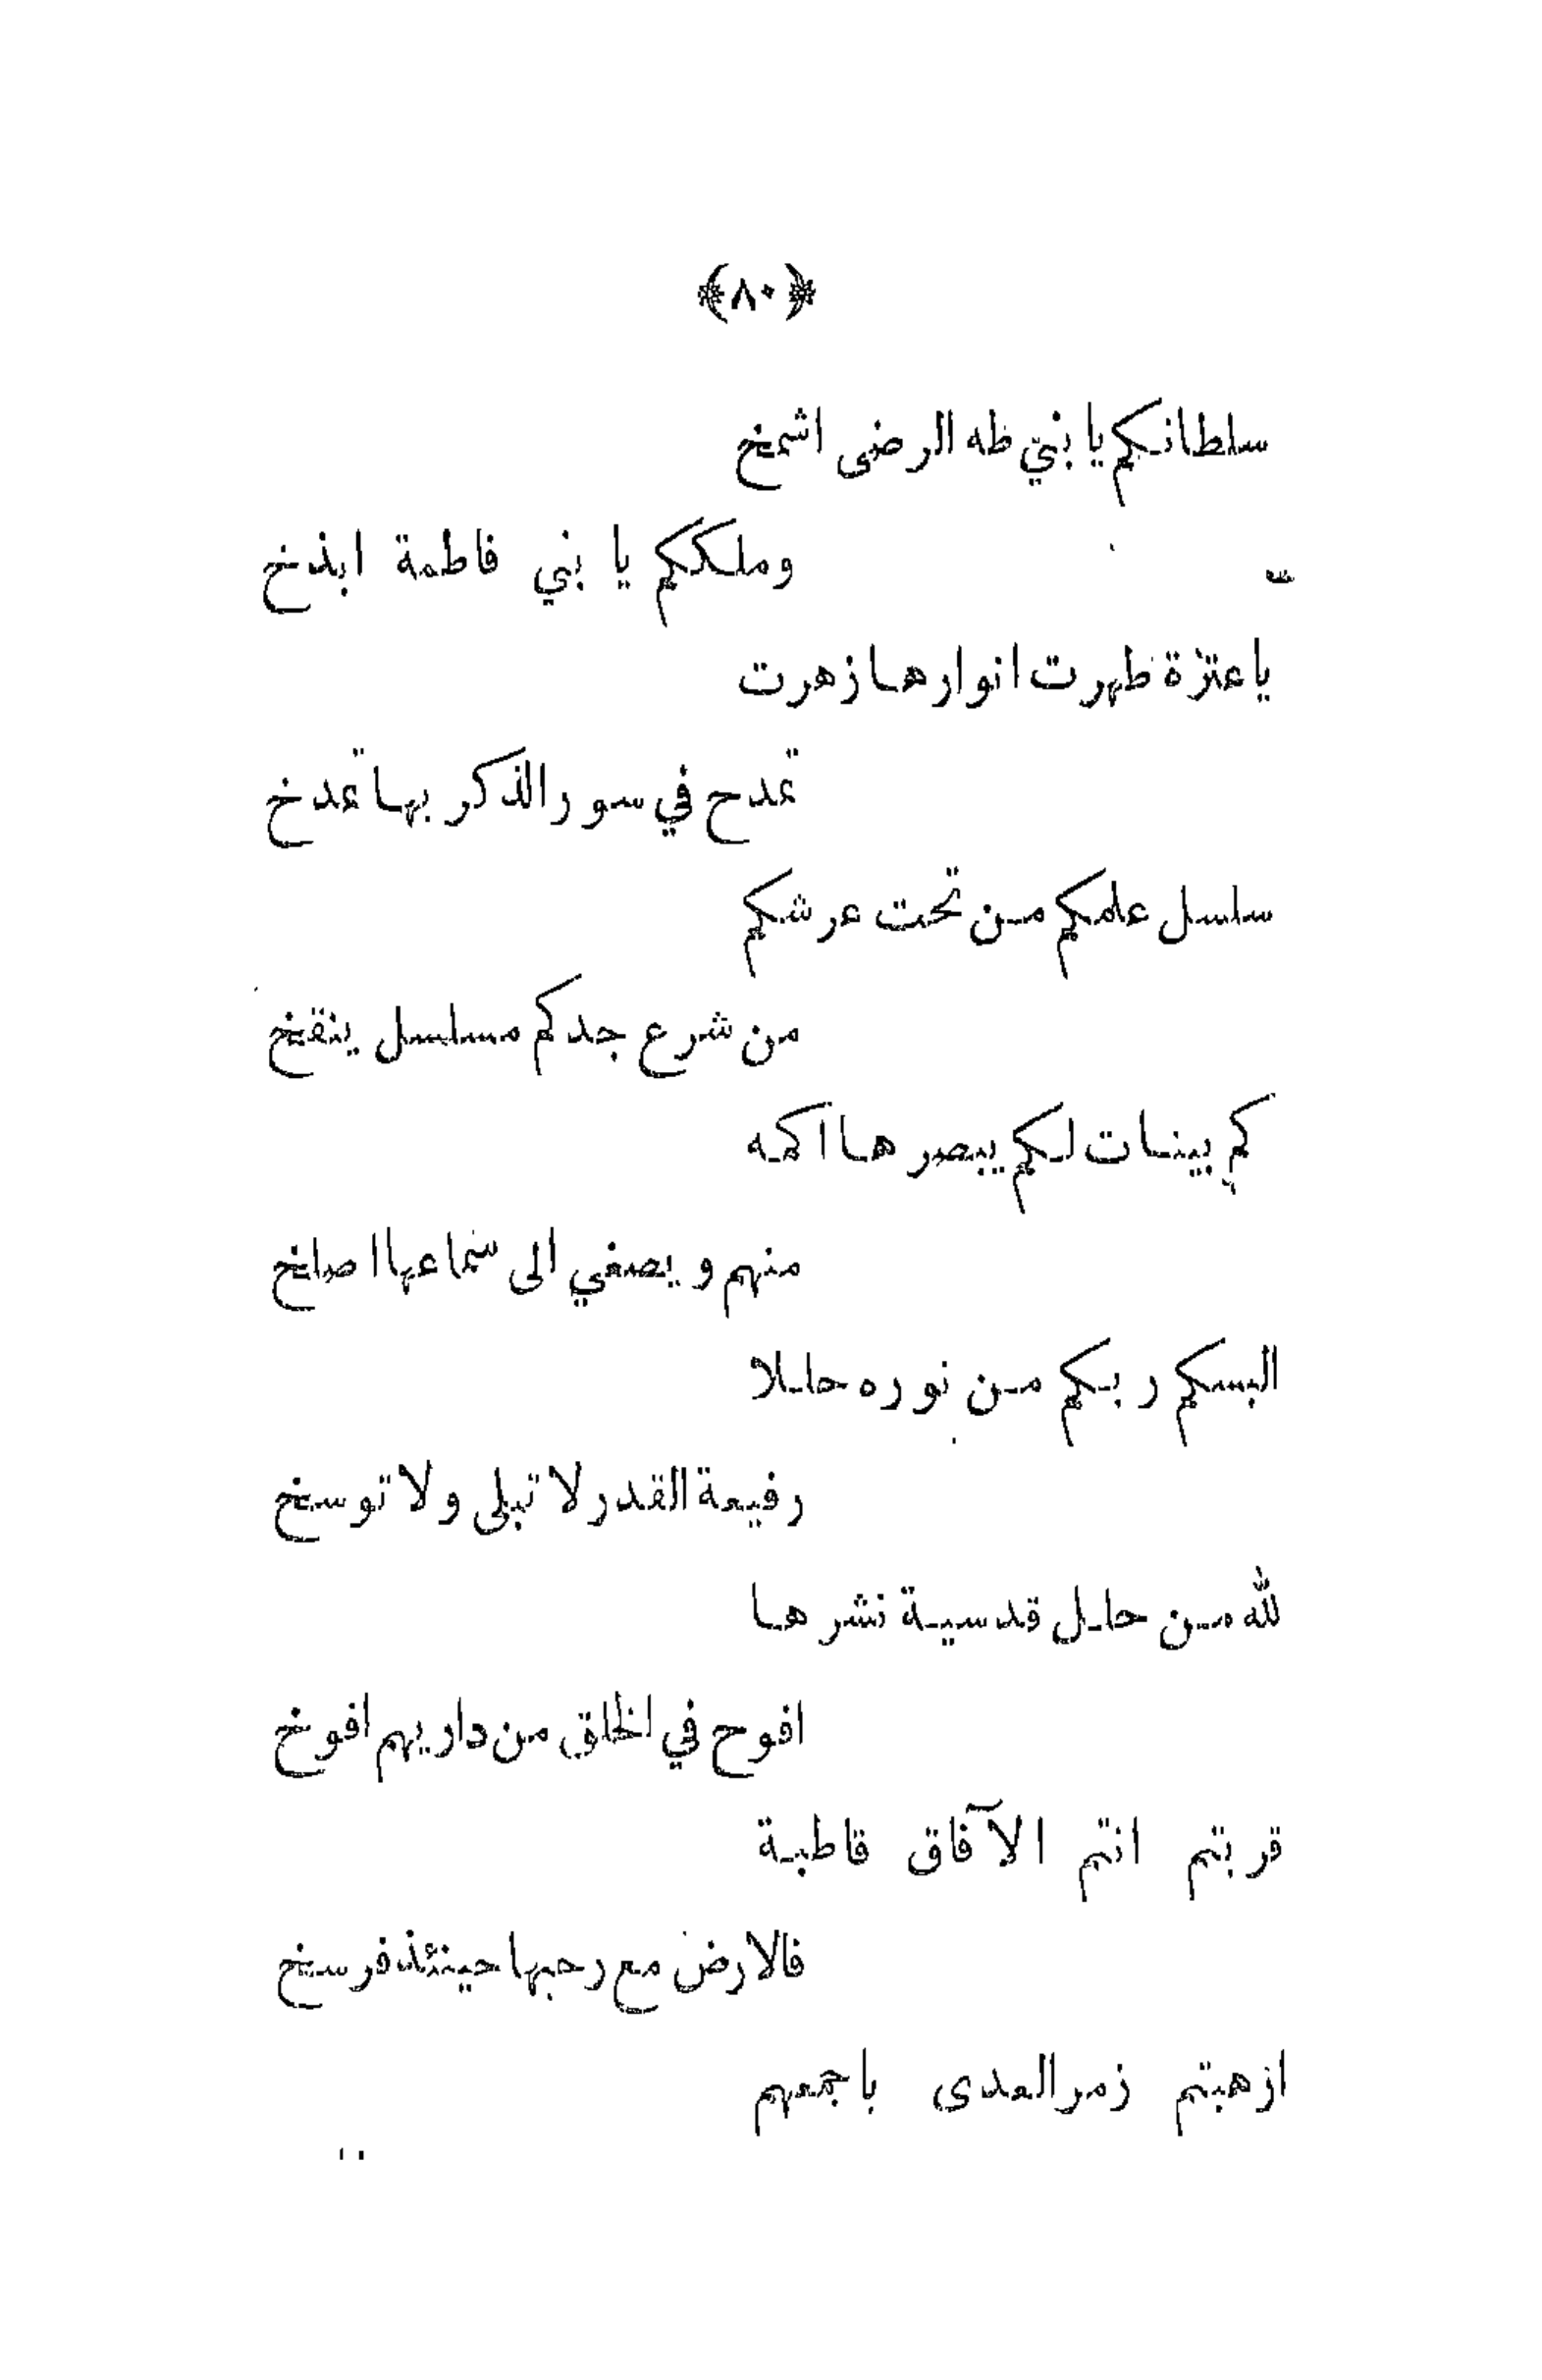 ﴿٨٠﴾
سلطانكم يا بني طه الرضى اشمخ
وملككم يا بني فاطمة ابذخ
يا عترة ظهرت انوارها زهرت
تمدح في سور الذكر بها تمدخ
سلسل علمكم من تحت عرشكم
من شرع جدكم مسلسل ينقخ
كم بينات لكم يبصرها اكمه
منهم ويصغي الى سماعها اصلخ
البسكم ربكم من نوره حللا
رفيعة القدر لا تبلى ولا توسخ
لله من حلل قدسية نشرها
افوح في الخلق من داريهم افوخ
قربتم انتم الآفاق قاطبة
فالارض مع رحبها حينئذ فرسخ
ازهبتم زمر العدى باجمعهم